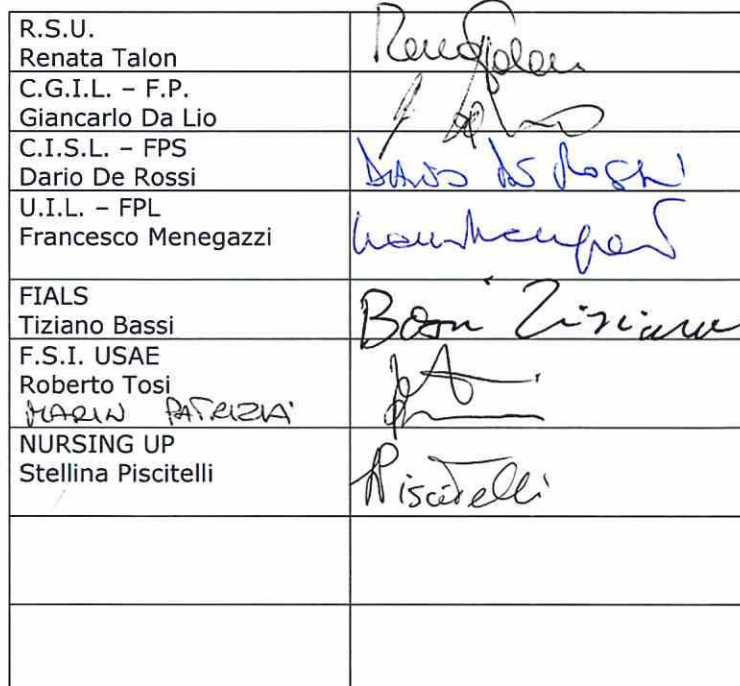 R.S.U.
Renata Talon
C.G.I.L. – F.P.
Giancarlo Da Lio
C.I.S.L. – FPS
Dario De Rossi
Dario De Rossi
U.I.L. – FPL
Francesco Menegazzi
FIALS
Tiziano Bassi
Bassi Tiziano
F.S.I. USAE
Roberto Tosi
MARIN PATRIZIA
NURSING UP
Stellina Piscitelli
Piscitelli